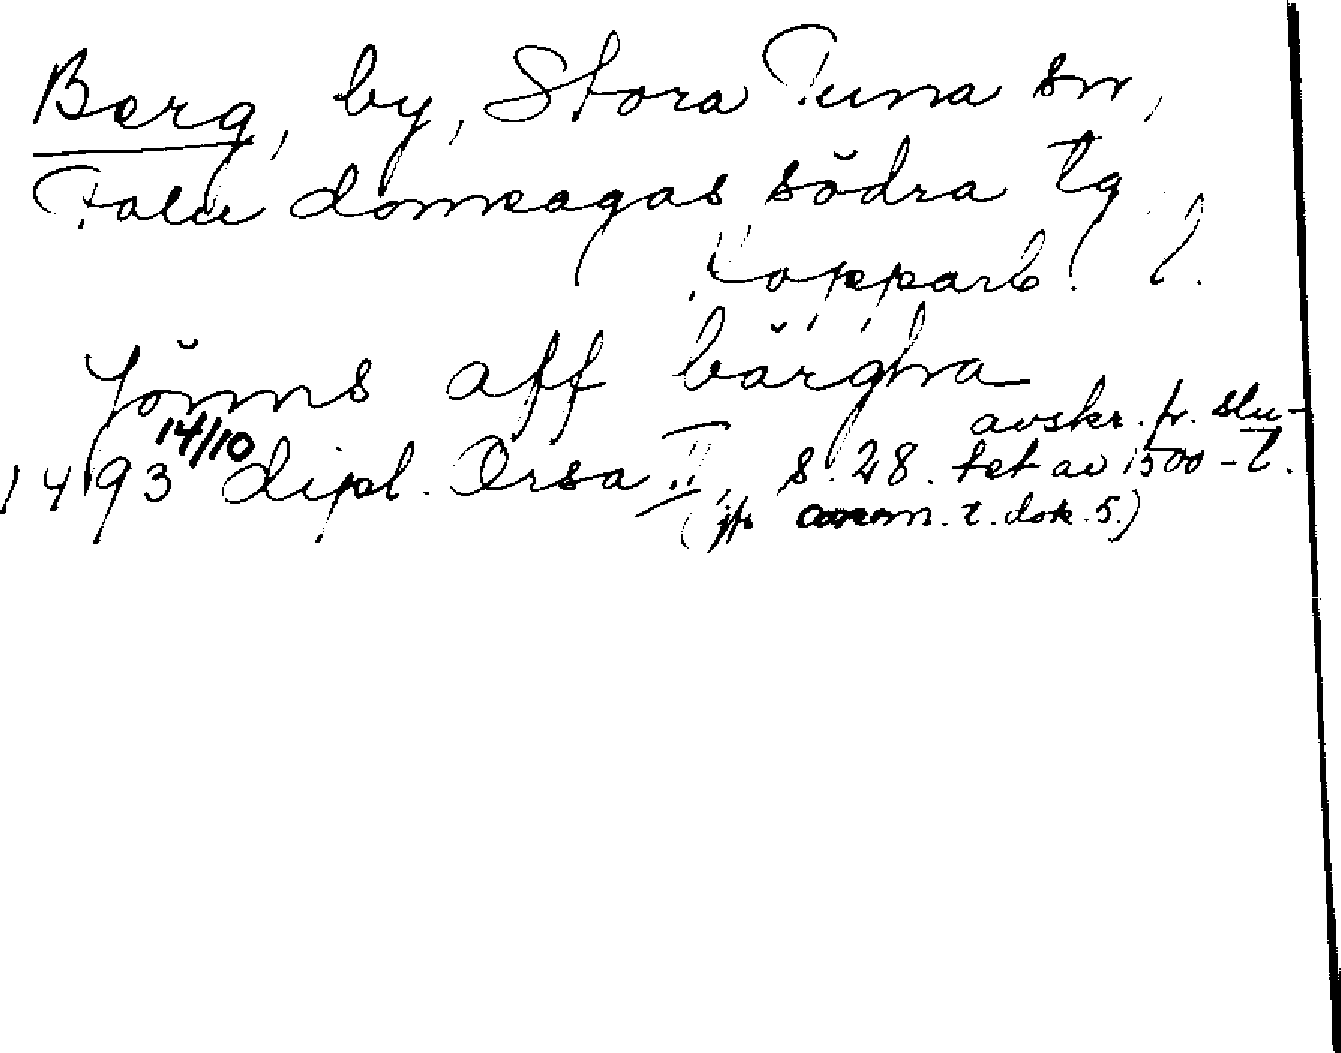 Berg, by, Stora Tuna sn,
Falu domsagas södra tg
Kopparb. l.
Jönns aff bärghna
1493 14/10 dipl. Orsa II, s. 28. avskr. fr. slu-
tet av 1500-l.
(jfr anm. t. dok. 5.)